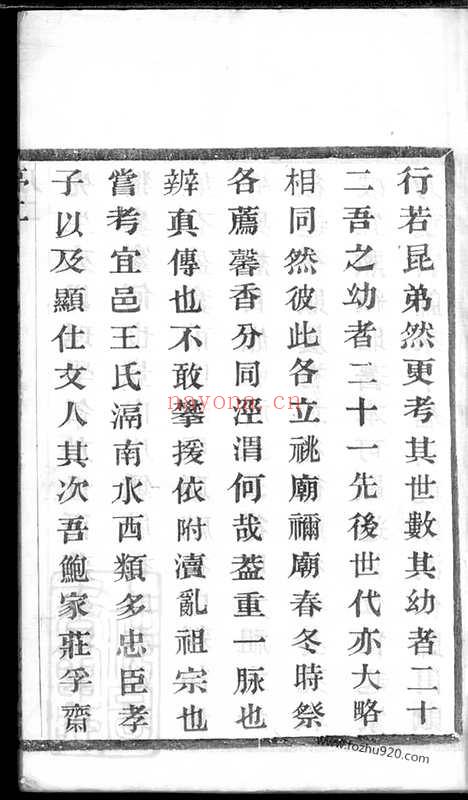 行若昆弟然更考其世數其幼者二十
二吾之幼者二十一先後世代亦大略
相同然彼此各立祧廟禰廟春冬時祭
各薦馨香分同涇渭何哉蓋重一脉也
辨真傳也不敢攀援依附瀆亂祖宗也
嘗考宜邑王氏滆南水西類多忠臣孝
子以及顯仕文人其次吾鮑家莊孚齋
nayona.cn
www.tozhu920.com